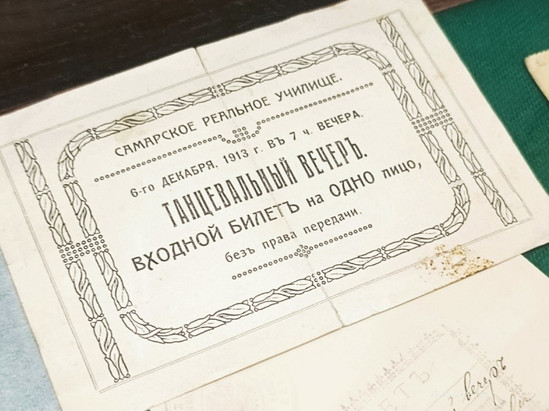 САМАРСКОЕ РЕАЛЬНОЕ УЧИЛИЩЕ.
6-го ДЕКАБРЯ, 1913 г. ВЪ 7 ч. ВЕЧЕРА.
ТАНЦЕВАЛЬНЫЙ ВЕЧЕРЪ.
ВХОДНОЙ БИЛЕТЪ на ОДНО лицо,
безъ права передачи.
вечеръ